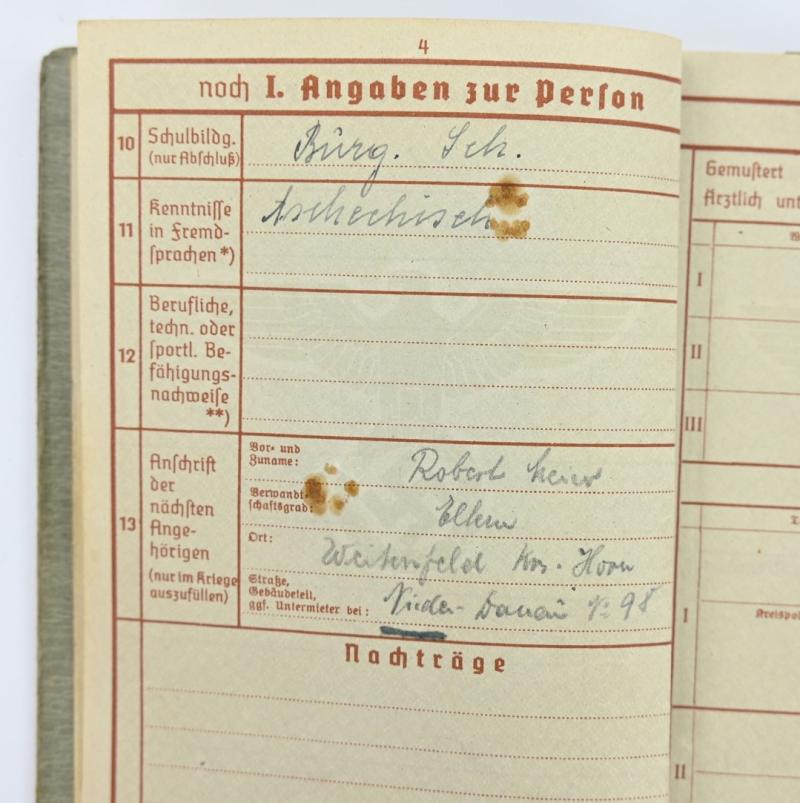 4
noch I. Angaben zur Person
10 Schulbildg. (nur Abschluß)
Bürg. Sch.
11 Kenntnisse in Fremd-
sprachen *)
tschechisch
12 Berufliche,
techn. oder
sportl. Be-
fähigungs-
nachweise
**)
13 Anschrift
der
nächsten
Ange-
hörigen
(nur im Kriege
auszufüllen)
Vor- und
Zuname: Robert
Verwandt-
schaftsgrad: Eltern
Ort: Weitersfeld Krs. Horn
Straße,
Gebäudeteil,
ggf. Untermieter bei: Nieder-Donau № 98
Nachträge
Gemustert
Ärztlich
I
II
III
I
II